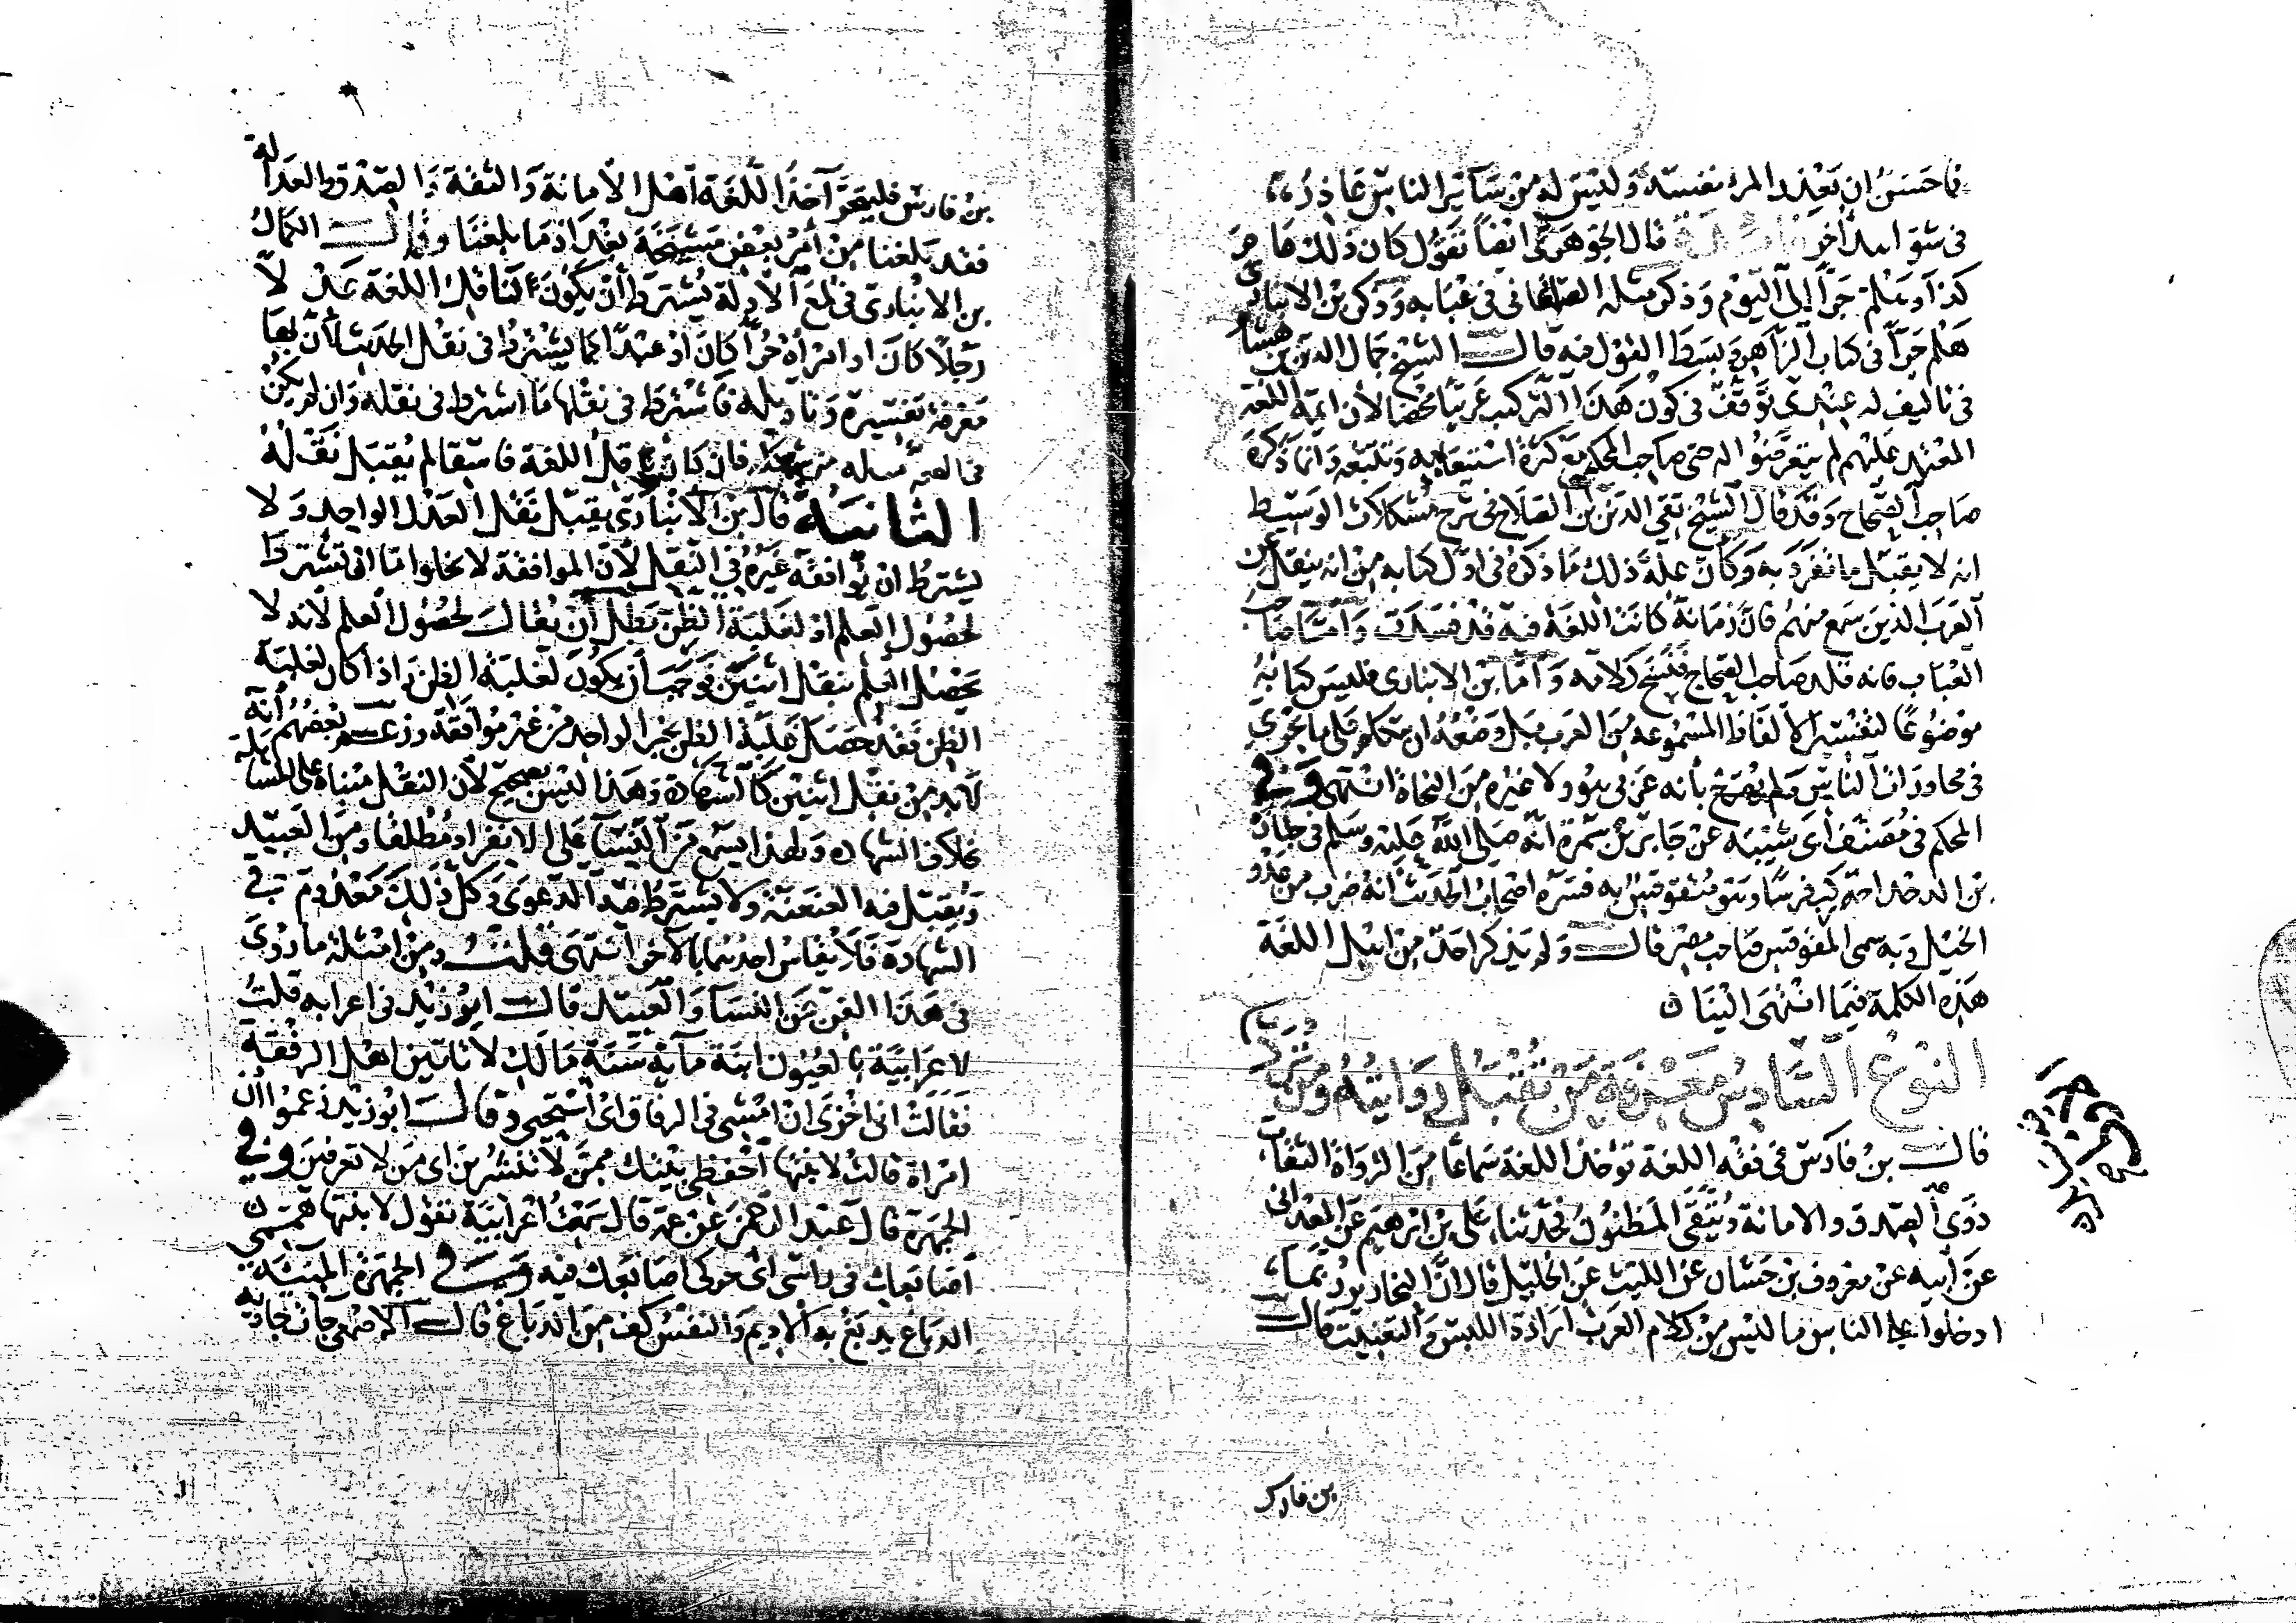 فاحسن ان يعذر المرء نفسه وليس له من سائر الناس عاذر
في شواهد أخر قال الجوهري ايضا تقول كان ذلك عام
كذا وهلم جرا إلى اليوم وذكر مثله الصاغاني في عبابه وذكر بن الانباري
هلم جرا في كتاب الزاهر وبسط القول فيه قال الشيخ جمال الدين بن هشام
في تاليف له عندي توقف في كون هذا التركيب عربيا محضا لأن ايمة اللغة
المعتمد عليهم لم يتعرضوا له حتى صاحب المحكم مع كثرة استيعابه وتتبعه وانما ذكره
صاحب الصحاح وقد قال الشيخ تقي الدين بن الصلاح في شرح مشكلات الوسيط
انه لا يقبل ما تفرد به وكان علة ذلك ما ذكره في اول كتابه من انه ينقل عن
العرب الذين سمع منهم فان زمانه كانت اللغة فيه قد فسدت واما صاحب
العباب فانه قلد صاحب الصحاح فنسخ كلامه واما بن الانباري فليس كتابه
موضوعا لتفسير الالفاظ المسموعة من العرب بل وضعه ان يتكلم على ما يجري
في محاورات الناس ولم يصرح بأنه عربي هو ولا غيره من النحاة انتهى وفي
المحكم في مصنف ابن أبي شيبة عن جابر بن سمرة انه صلى الله عليه وسلم في جنازة
بن الدحداحة ركب فرسا وهو يتقوقس به فسره اصحاب الحديث انه ضرب من عدو
الخيل وبه سمى المقوقس صاحب مصر قال ولم يذكر احد من اهل اللغة
هذه الكلمة فيما انتهى الينا
النوع السادس معرفة من تقبل روايته ومن ترد
قال بن فارس في فقه اللغة توخذ اللغة سماعا من الرواة الثقات
ذوي الصدق والامانة ويتقى المظنون فحدثنا علي بن ابرهيم عن المعداني
عن أبيه عن معروف بن حسان عن الليث عن الخليل قال ان النحارير ربما
ادخلوا على الناس ما ليس من كلام العرب ارادة اللبس والتعنيت قال
بن فارس
بن فارس فليتحر آخذ اللغة اهل الامانة والثقة والصدق والعدالة
فقد بلغنا من أمر بعض مشيخة بغداد ما بلغنا وقال الكمال
بن الانباري في لمع الادلة يشترط أن يكون ناقل اللغة عدلا
رجلا كان او امرأة حرا كان او عبدا كما يشترط في نقل الحديث لأن بها
معرفة تفسيره وتاويله فاشترط في نقلها ما اشترط في نقله وان لم يكن
في الفضيلة من شكله فان كان ناقل اللغة فاسقا لم يقبل نقله
الثانية قال بن الانباري يقبل نقل العدل الواحد ولا
يشترط ان يوافقه غيره في النقل لأن الموافقة لا يخلوا اما ان تشترط
لحصول العلم او لغلبة الظن بطل أن يقال لحصول العلم لأنه لا
يحصل العلم بنقل اثنين فوجب أن يكون لغلبة الظن واذا كان لغلبة
الظن فقد حصل غلبة الظن بخبر الواحد من غير موافقة وزعم بعضهم أنه
لا بد من نقل اثنين كالشهادة وهذا ليس بصحيح لأن النقل مبناه على المساهلة
بخلاف الشهادة ولهذا يسمع من النساء على الانفراد مطلقا ومن العبيد
ويقبل فيه العنعنة ولا يشترط فيه الدعوى وكل ذلك معدوم في
الشهادة فلا يقاس احدهما بالاخر انتهى قلت ومن امثلة ما روى
في هذا الفن عن النسا والعبيد قال ابو زيد في اعرابه قلت
لاعرابية بالعيون ابنة مأية سنة ما لك لا تاتين اهل الرفقة
فقالت اني اخزى ان امشي في الرفاق أي أستحي وقال ابو زيد زعموا ان
امراة قالت لابنتها احفظي بيتك ممن لا تنشرين اى من لا تعرفين وفي
الجمهرة قال عبد الرحمن عن عمه قال سمعت اعرابية تقول لابنتها هممي
اصابعك في راسي اي حركي اصابعك فيه وفي الجمهرة المنيئة
الدباغ يدبغ به الاديم والنفس كف من الدباغ قال الاصمعي جاءت جارية